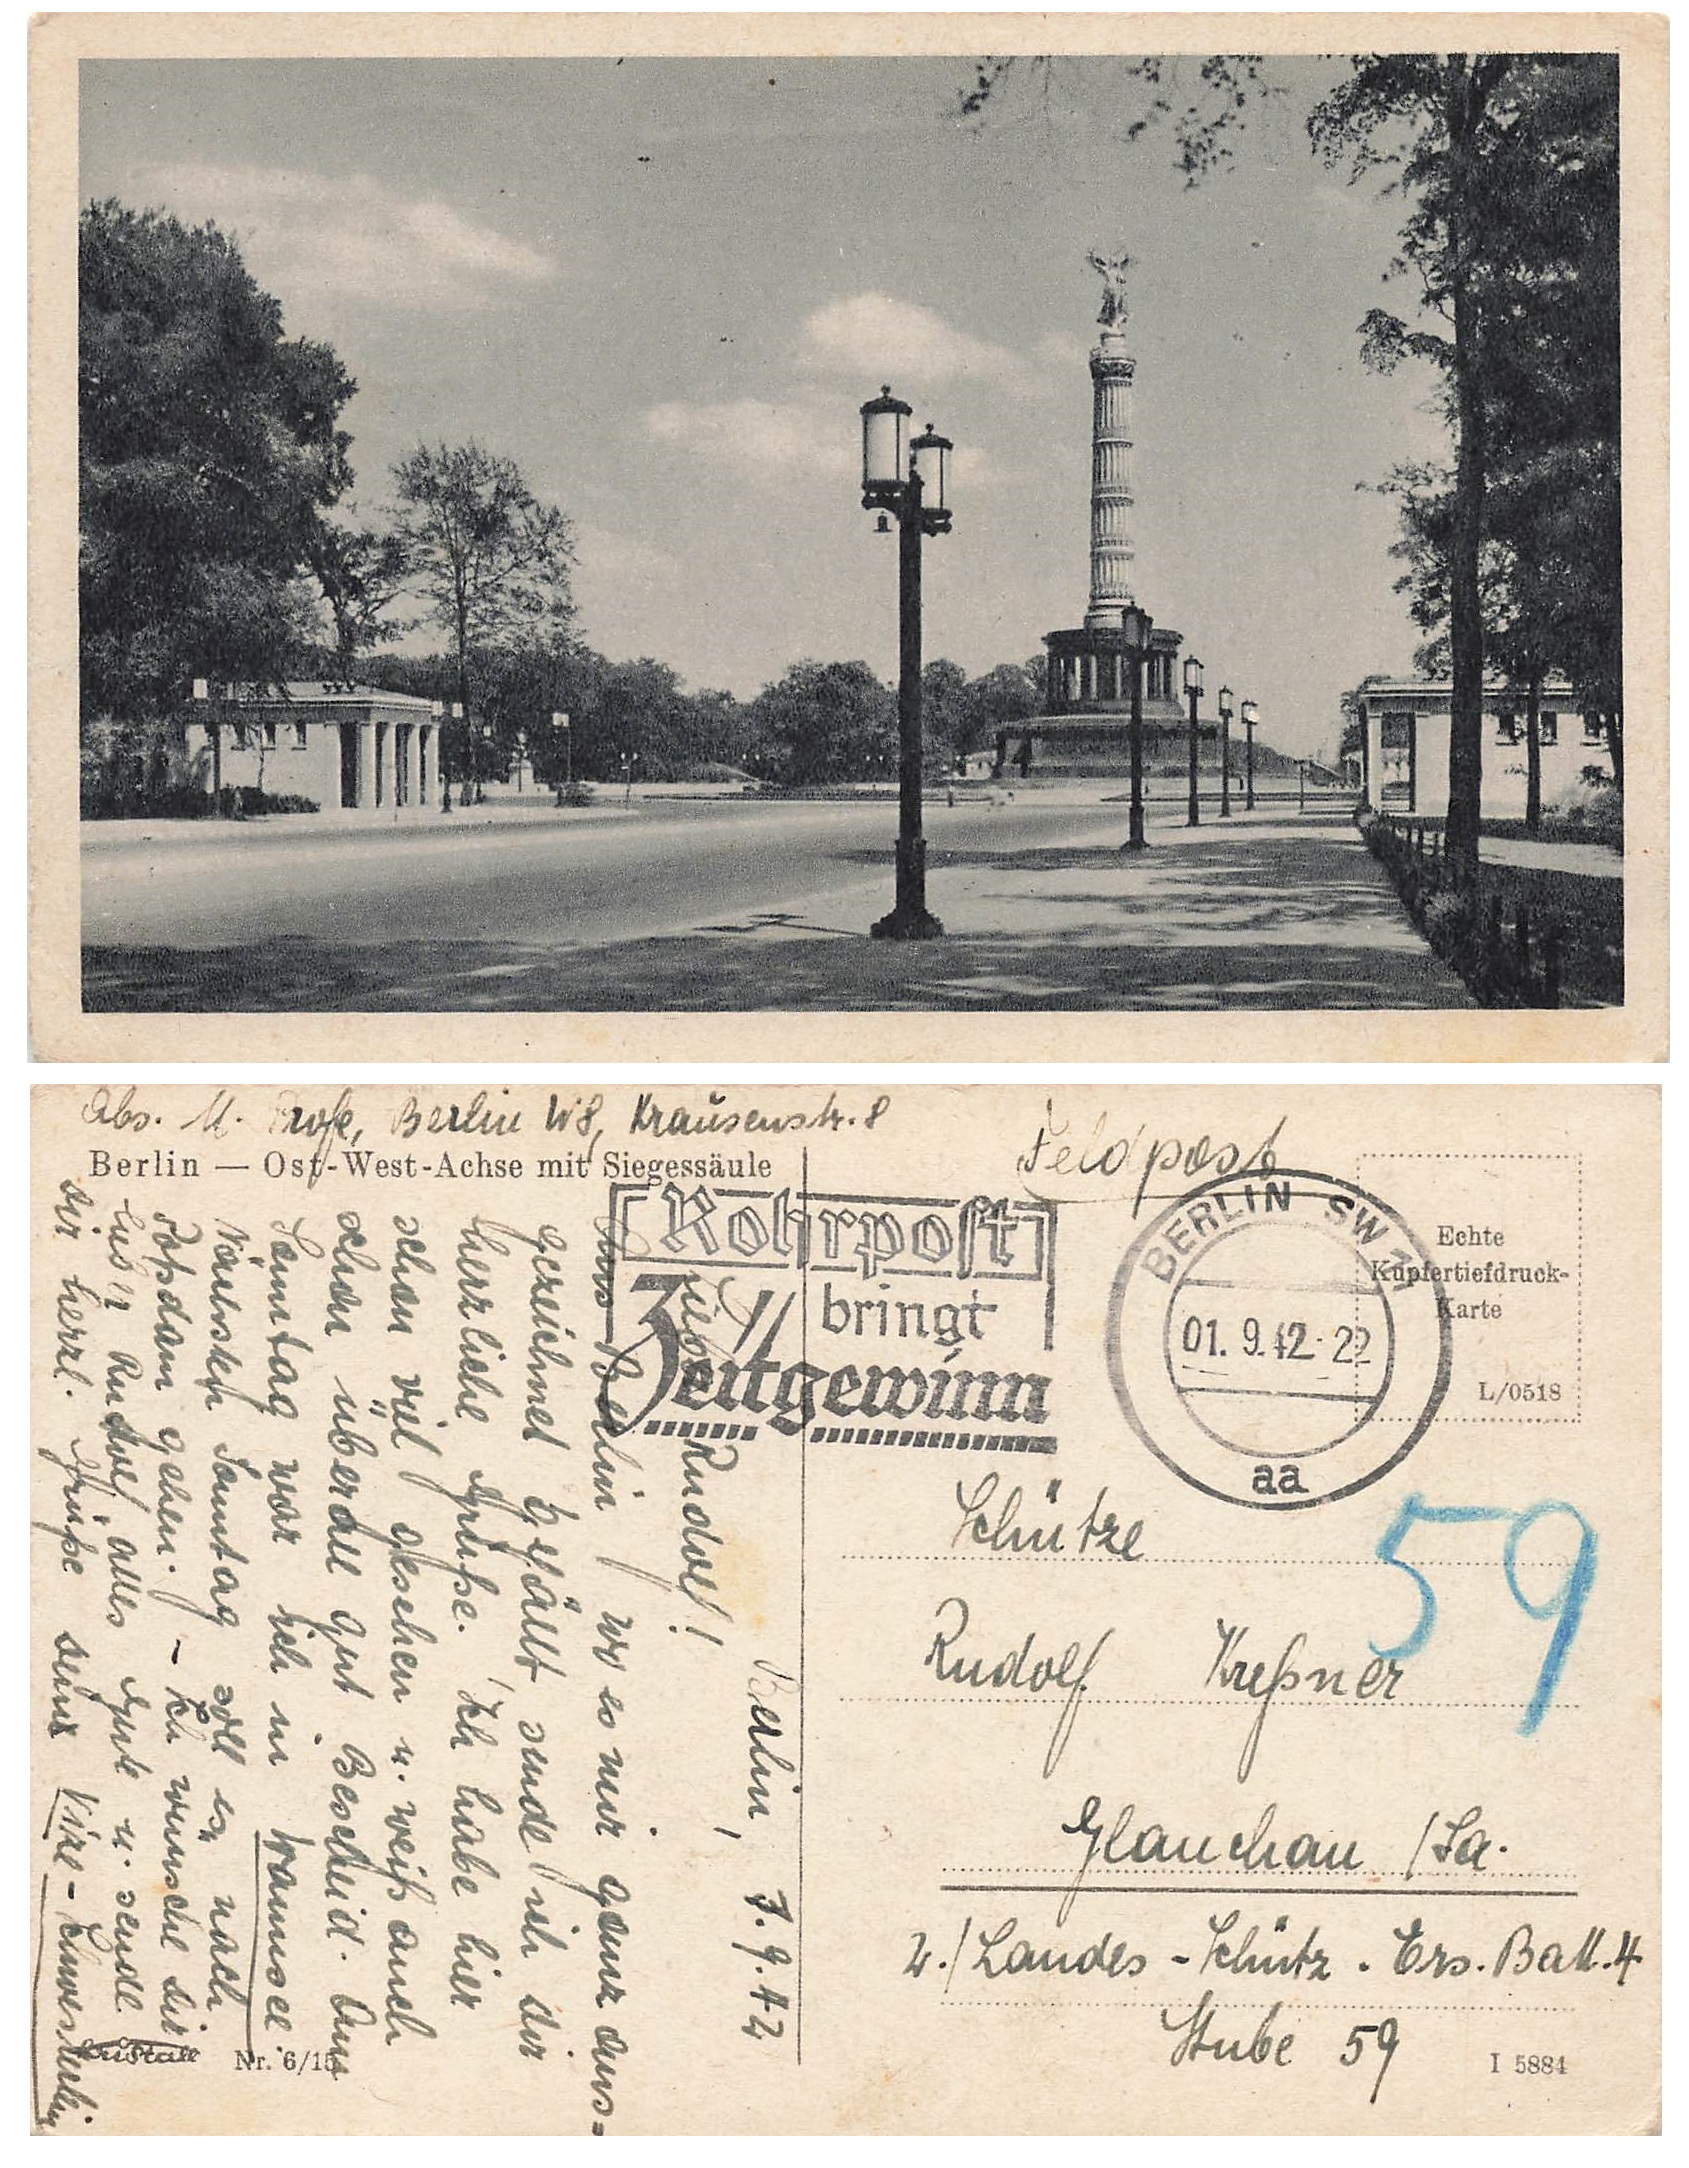 Abs. M. Profe, Berlin W8, Krausenstr. 8
Berlin — Ost-West-Achse mit Siegessäule
Feldpost
Rohrpost
bringt
Zeitgewinn
BERLIN SW 11
01.9.42-22
aa
Echte
Kupfertiefdruck-
Karte
L/0518
59
Schütze
Rudolf Kreßner
Glauchau /Sa.
2./Landes-Schütz. Ers. Batl. 4
Stube 59
I 5884
Berlin, 1.9.42
Lieber Rudolf!
Aus Berlin, wo es mir ganz aus=
gezeichnet gefällt sende ich dir
herzliche Grüße. Ich habe hier
schon viel gesehen u. weiß auch
schon überall gut Bescheid. Am
Sonntag war ich in Wannsee
Nächsten Sonntag soll es nach
Potsdam gehen. – Ich wünsche dir
lieber Rudolf, alles Gute u. sende
dir herzl. Grüße deine
Nr. 6/15